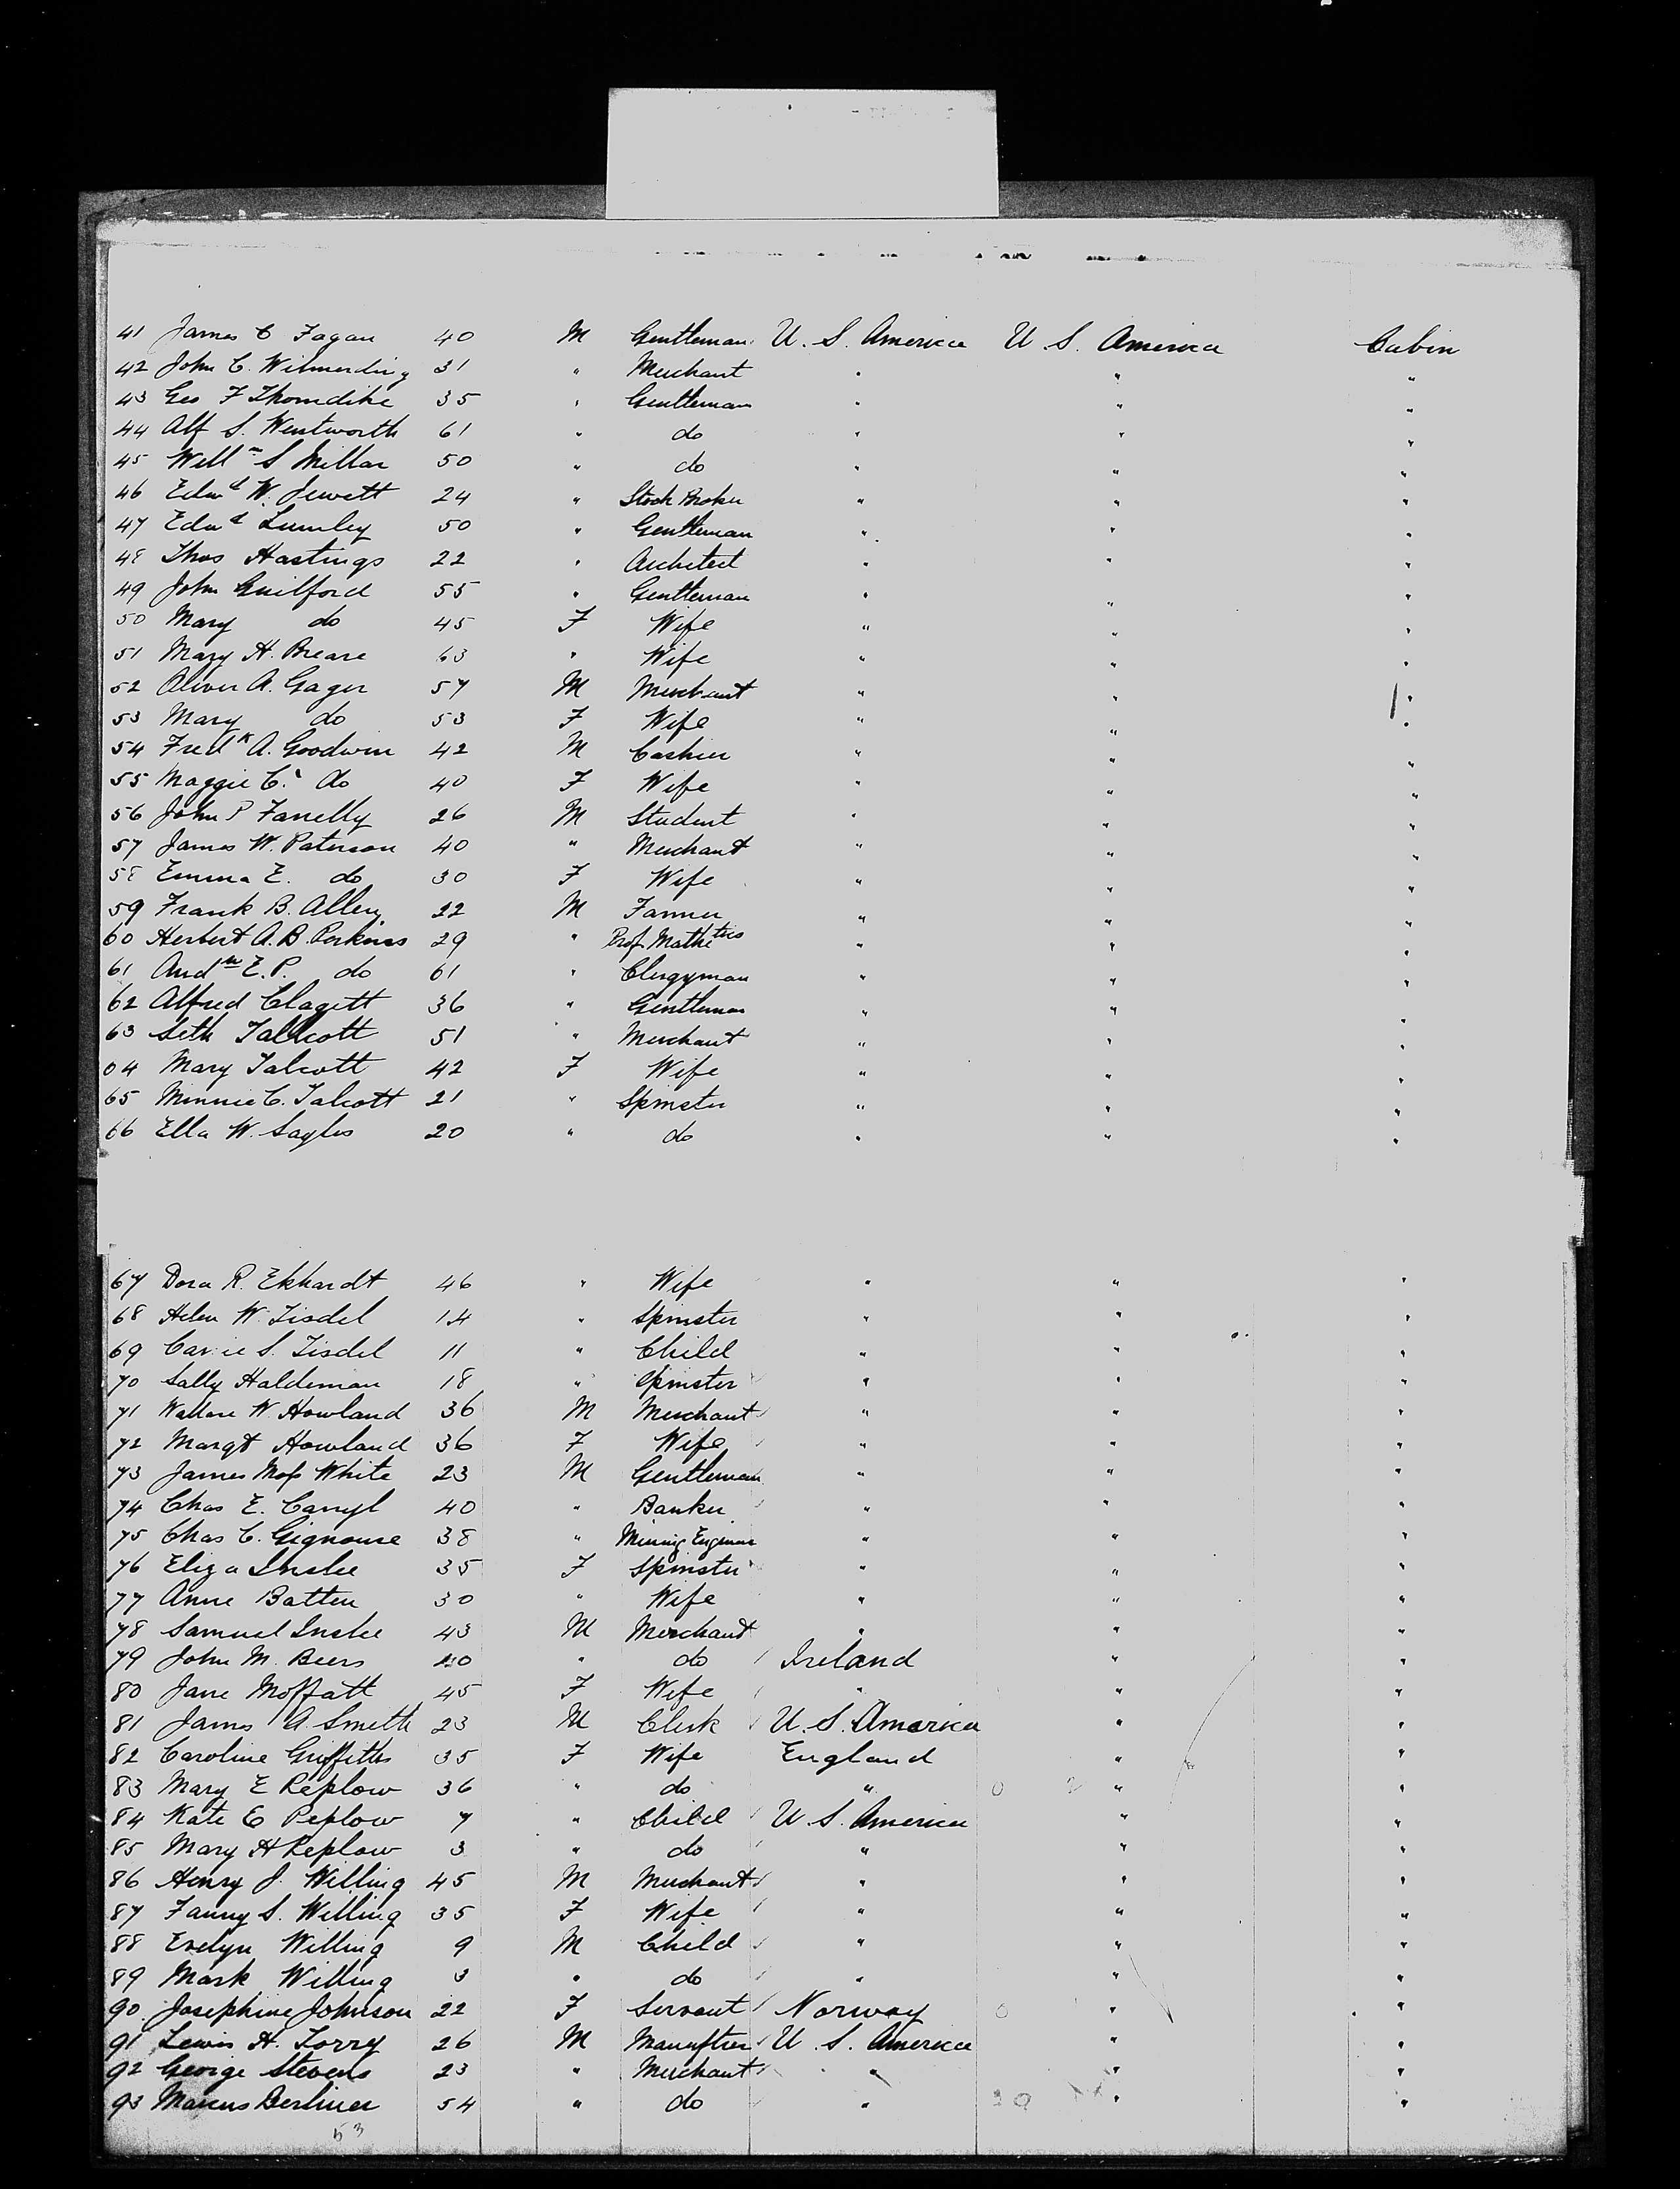 41 James C Fagan 40 M Gentleman U. S. America U S. America Cabin
42 John C. Wilmerding 31 " Merchant " " "
43 Geo F Thorndike 35 " Gentleman " " "
44 Alf S. Wentworth 61 " do " " "
45 Willm S Millar 50 " do " " "
46 Edwd W. Jewett 24 " Stock Broker " " "
47 Edwd Lumley 50 " Gentleman " " "
48 Thos Hastings 22 " Architect " " "
49 John Guilford 55 " Gentleman " " "
50 Mary do 45 F Wife " " "
51 Mary H. Brease 63 " Wife " " "
52 Oliver A. Gager 57 M Merchant " " "
53 Mary do 53 F Wife " " "
54 Fredk A. Goodwin 42 M Cashier " " "
55 Maggie C. do 40 F Wife " " "
56 John P Farrelly 26 M Student " " "
57 James W. Paterson 40 " Merchant " " "
58 Emma E. do 30 F Wife " " "
59 Frank B. Allen 22 M Farmer " " "
60 Herbert A. B. Perkins 29 " Prof. Mathetics " " "
61 Andw E. P. do 61 " Clergyman " " "
62 Alfred Clagett 36 " Gentleman " " "
63 Seth Tallcott 51 " Merchant " " "
64 Mary Talcott 42 F Wife " " "
65 Minnie C. Talcott 21 " Spinster " " "
66 Ella W. Sayles 20 " do " " "
67 Dora R. Ekhardt 46 " Wife " " "
68 Helen W. Tisdel 14 " Spinster " " "
69 Carrie S. Tisdel 11 " Child " " "
70 Sally Haldeman 18 " Spinster " " "
71 Wallace W. Howland 36 M Merchant " " "
72 Margt Howland 36 F Wife " " "
73 James White 23 M Gentleman " " "
74 Chas E. Carryl 40 " Banker " " "
75 Chas C. 38 " Mining Engineer " " "
76 Eliza Inslee 35 F Spinster " " "
77 Anne Batten 30 " Wife " " "
78 Samuel Inslee 43 M Merchant " " "
79 John M. Beers 40 " do Ireland " "
80 Jane Moffatt 45 F Wife " " "
81 James A. Smith 23 M Clerk U. S. America " "
82 Caroline Griffiths 35 F Wife England " "
83 Mary E Peplow 36 " do " " "
84 Kate E Peplow 7 " Child U. S. America " "
85 Mary H Peplow 3 " do " " "
86 Henry J. Willing 45 M Merchant " " "
87 Fanny S. Willing 35 F Wife " " "
88 Evelyn Willing 9 M Child " " "
89 Mark Willing 3 " do " " "
90 Josephine Johnson 22 F Servant Norway " "
91 Lewis H. Torry 26 M U. S. America " "
92 George Stevens 23 " Merchant " " "
93 Marcus Berliner 54 " do " " "
53